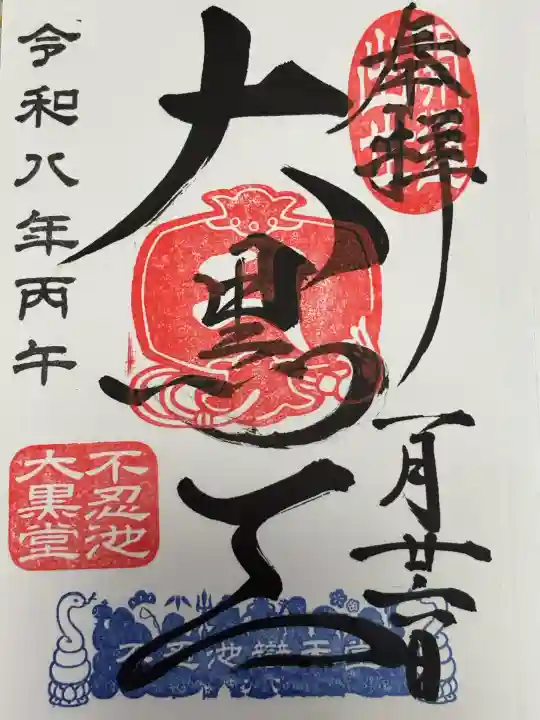 奉拝
大黒天
一月廿六日
令和八年丙午
不忍池
大黒堂
不忍池辯天堂